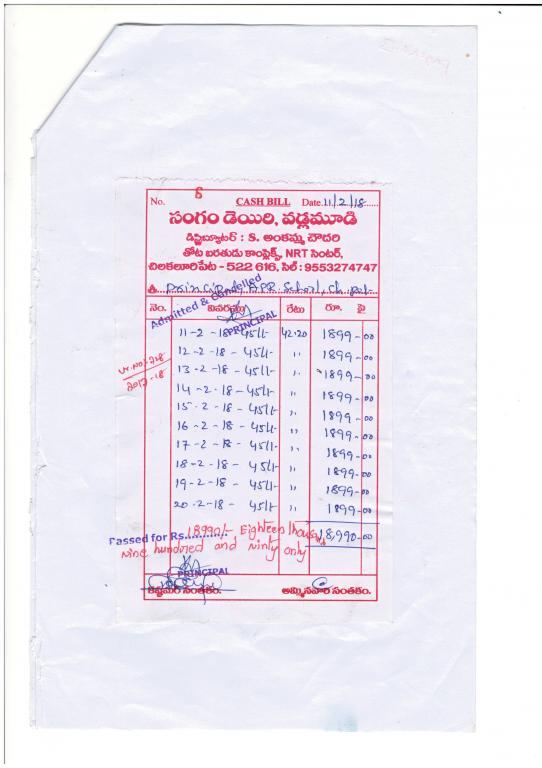 No. 8 CASH BILL Date. 11/2/18
సంగం డెయిరి, వడ్లమూడి
డిస్ట్రిబ్యూటర్ : కె. అంకమ్మ చౌదరి
తోట బరతుడు కాంప్లెక్స్, NRT సెంటర్,
చిలకలూరిపేట - 522 616, సెల్ : 9553274747
శ్రీ Principal, APR School, Ch. pet
Admitted & Cancelled
నెం. వివరము రేటు రూ. పై
PRINCIPAL
11-2-18 45 lt 42.20 1899-00
12-2-18 - 45 lt " 1899-00
13-2-18 - 45 lt " 1899-00
Vr. No: 728
2017-18
14-2-18 - 45 lt " 1899-00
15-2-18 - 45 lt " 1899-00
16-2-18 - 45 lt " 1899-00
17-2-18 - 45 lt " 1899-00
18-2-18 - 45 lt " 1899-00
19-2-18 - 45 lt " 1899-00
20-2-18 - 45 lt " 1899-00
Passed for Rs. 18990/- Eighteen thousand 18,990-00
Nine hundred and ninty only
PRINCIPAL
కస్టమర్ సంతకం. అమ్మినవారి సంతకం.